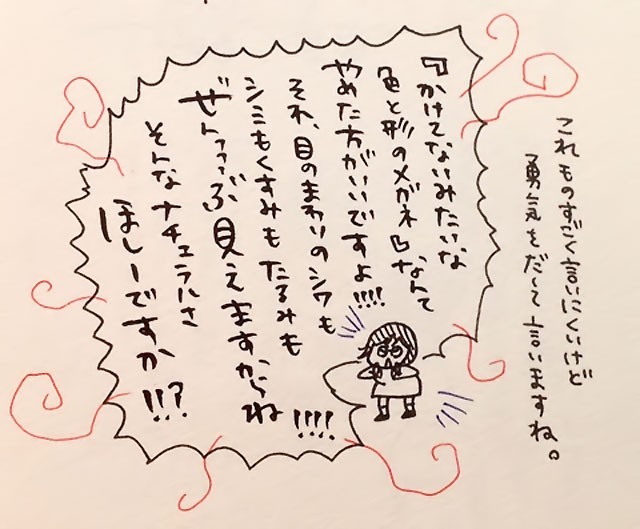 これものすごく言いにくいけど
勇気をだして言いますね。
『かけてないみたいな
色と形のメガネ』なんて
やめた方がいいですよ!!!!
それ、目のまわりのシワも
シミもくすみもたるみも
ぜんっっっぶ見えますからね!!!!
そんなナチュラルさ
ほしーですか!!?